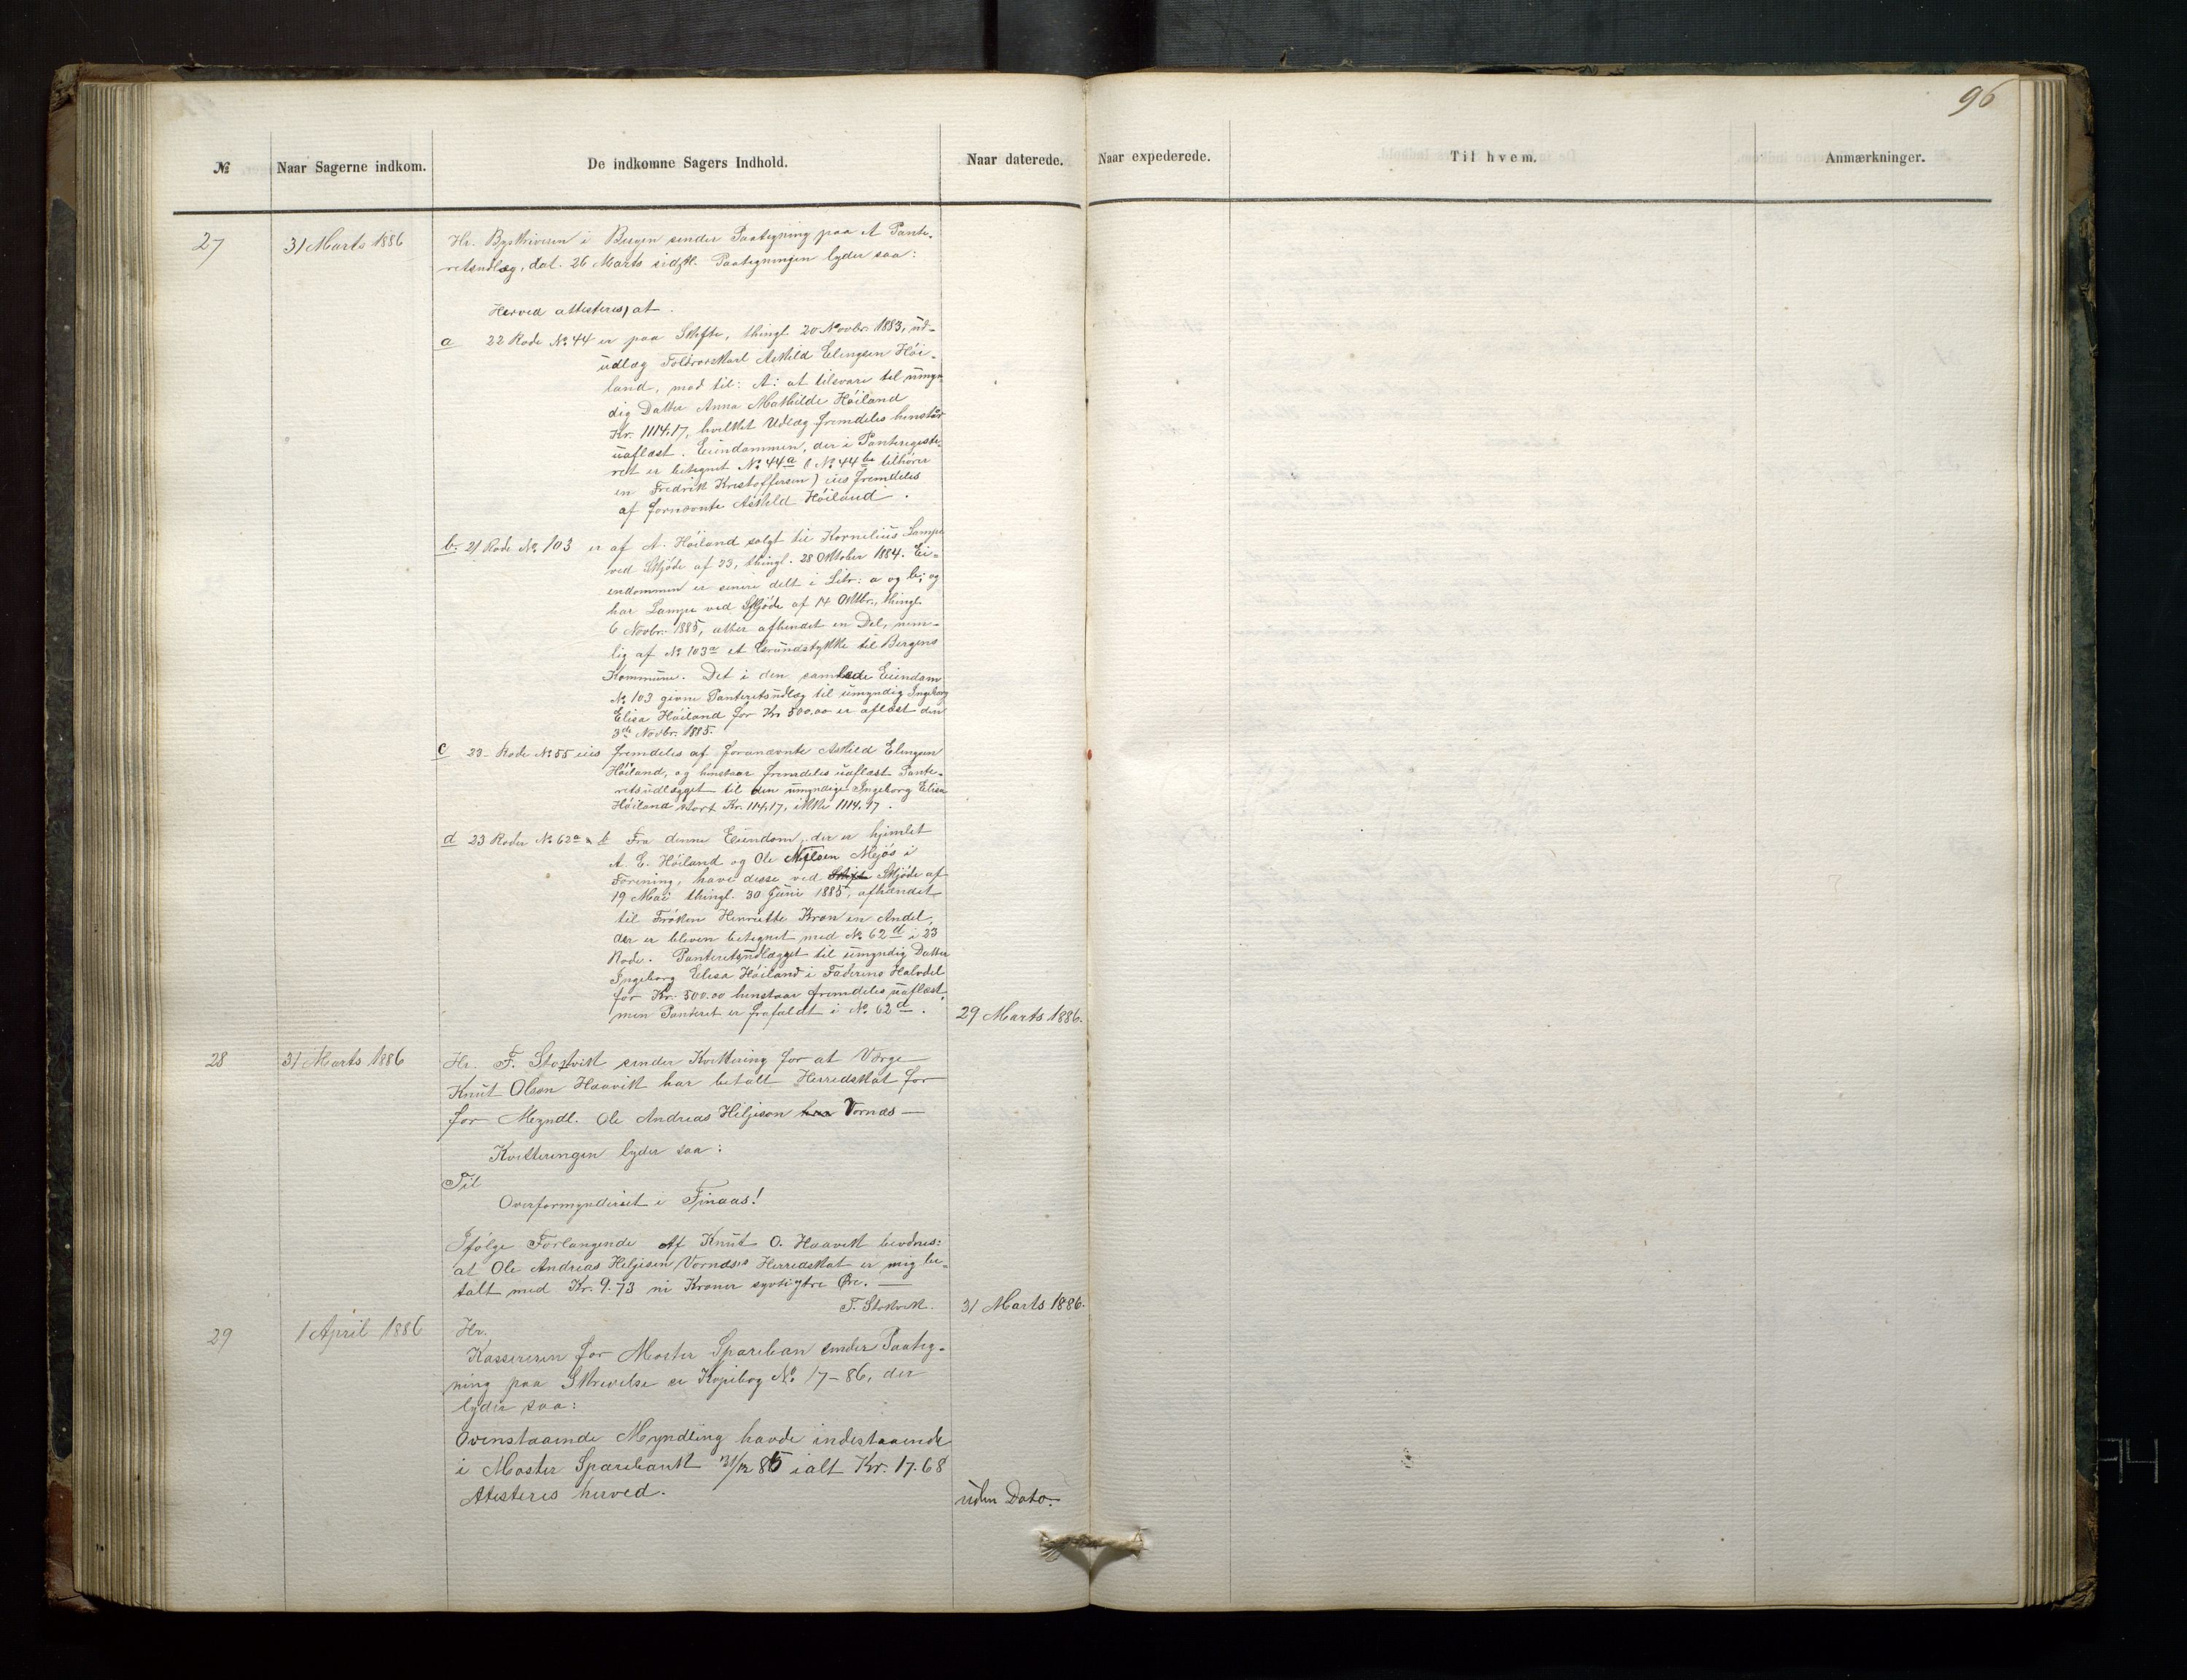 96
№ Naar Sagerne indkom. De indkomne Sagers Indhold. Naar daterede. Naar expederede. Til hvem. Anmærkninger.
27 31 Marts 1886 Hr. Byskriveren i Bergen sender Paategning paa et Pante-
retsudlæg, dat. 26 Marts sidstl. Paategningen lyder saa:
Herved attesteres, at.
a 22 Rode No. 44 er paa Skifte, thingl. 20 Novbr. 1883, ud-
udlæg Toldroerskarl Askild Elingsen Høi-
land, mod til: A: at tilsvare til umyn-
dig Datter Anna Mathilde Høiland
Kr. 1114.17, hvilket Udlæg fremdeles henstår
uaflæst. Eiendommen, der i Panteregiste-
ret er betegnet No. 44a (No. 44b tilhører
en Fredrik Kristoffersen) eies fremdeles
af fornævnte Askild Høiland.
b. 21 Rode No. 103 er af A. Høiland solgt til Kornelius Lampe
ved Skjøde af 23, thingl. 28 Oktober 1884. Ei-
endommen er senere delt i Litr: a og b; og
har Lampe ved Skjøde af 14 Oktbr., thingl.
6 Novbr. 1885, atter afhendet en Del, nem-
lig af No. 103a et Grundstykke til Bergens
Kommune. Det i den samlede Eiendom
No. 103 givne Panteretsudlæg til umyndig Ingeborg
Elisa Høiland for Kr 500.00 er aflæst den
3de Novbr. 1885.
c 23 Rode No. 55 eies fremdeles af foranævnte Askild Elingsen
Høiland, og henstaar fremdeles uaflæst Pante-
retsudlægget til den umyndige Ingeborg Elisa
Høiland stort Kr. 114,17, ikke 1114.97.
d 23 Roder No. 62a & b Fra denne Eiendom, der er hjemlet
A. E. Høiland og Ole Nilsen Mejøs i
Forening, have disse ved Skifte Skjøde af
19 Mai thingl. 30 Juni 1885, afhændet
til Frøken Henriette Kron en Andel,
der er bleven betegnet med No. 62d i 23
Rode. Panteretsudlægget til umyndig Datter
Ingeborg Elisa Høiland i Faderens Halvdel
før Kr. 500.00 henstaar fremdeles uaflæst,
men Panteret er frafaldt i No. 62d. 29 Marts 1886.
28 31 Marts 1886 Hr. F. Stokvik sender Kvittering for at Værge
Knut Olson Haavik har betalt Herredskat for
for Myndl. Ole Andreas Hiljeson Vornæs —
Kvitteringen lyder saa:
Til
Overformynderiet i Finaas!
Ifølge Forlangende af Knut O. Haavik bevidnes:
at Ole Andreas Heljesen Vornæs's Herredskat er mig be-
talt med Kr. 9.73 ni Kroner syvtigtre Øre. —
F. Stokvik. 31 Marts 1886.
29 1 April 1886 Hr.
Kassereren for Moster Spareban sender Paateg-
ning paa Skrivelse se Kopibog No. 17-86, der
lyder saa:
Ovenstaaende Myndling havde indestaaende
i Moster Sparebank 31/12 85 ialt Kr. 17.68
Atesteres herved. uden Dato.